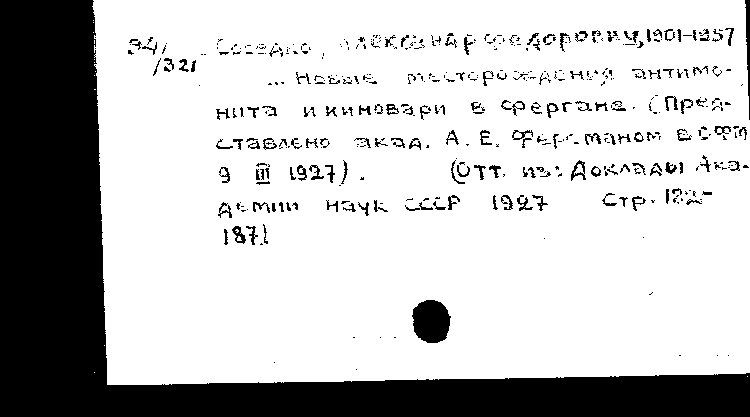 34/321 Соседко, Александр Федорович, 1901-1957
... Новые месторождения антимо-
нита и киновари в Фергане. (Пред-
ставлено акад. А. Е. Ферсманом в ОФМ
9 III 1927). (Отт. из: Доклады Ака-
демии наук СССР 1927 Стр. 182-
187)